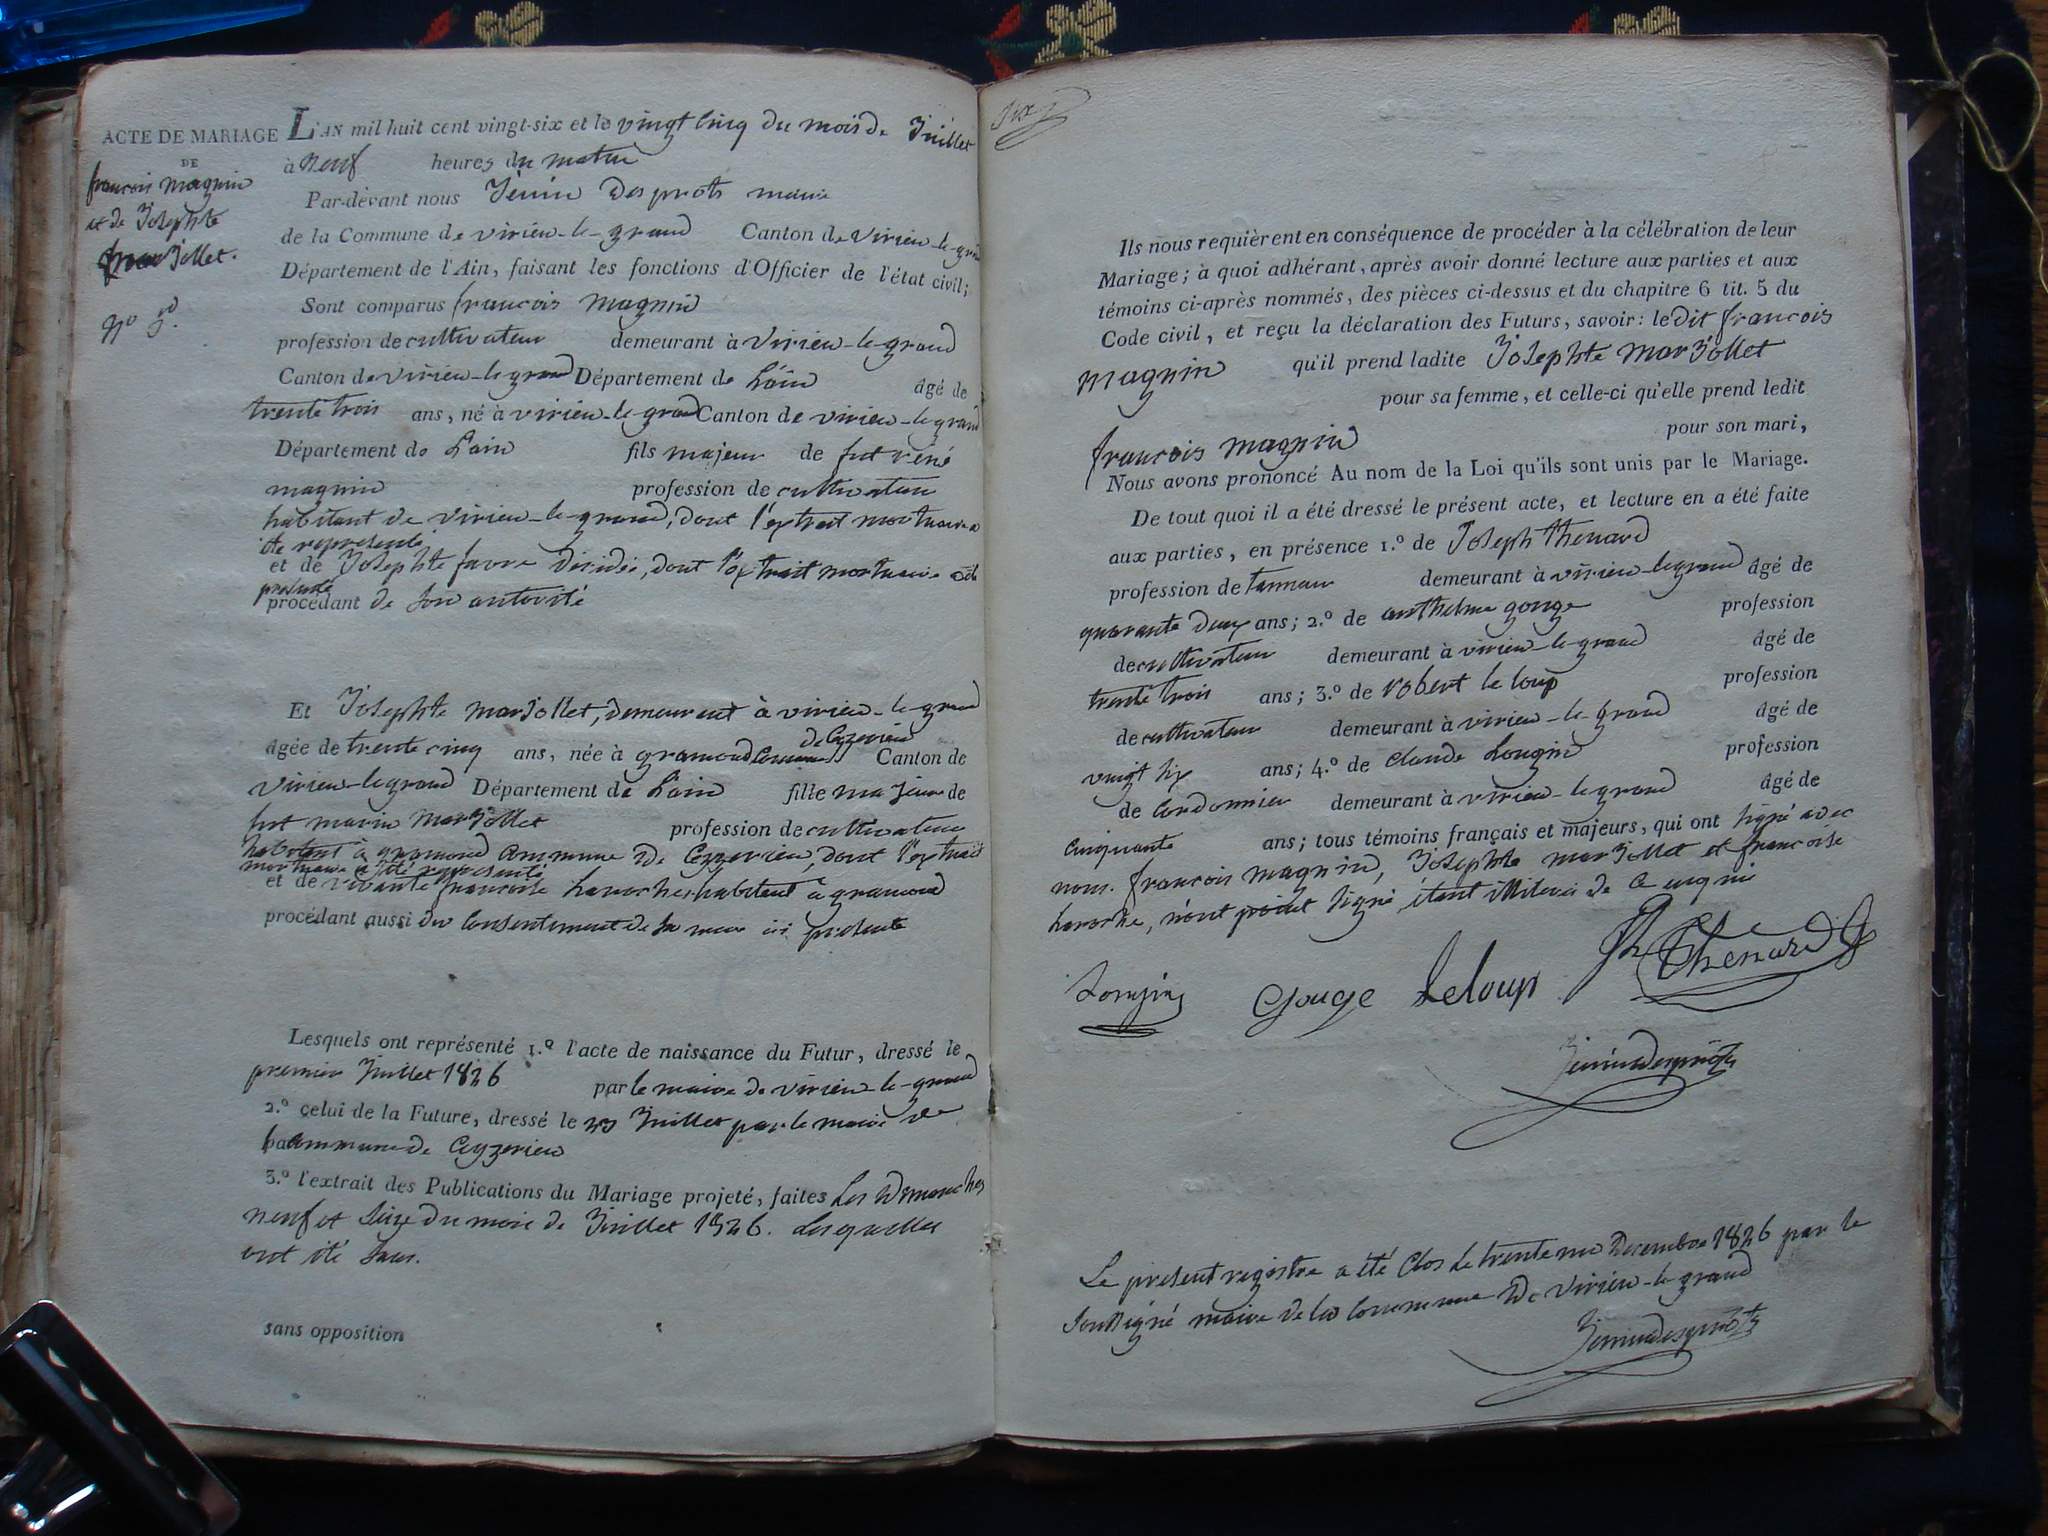 ACTE DE MARIAGE
DE
francois magnin
et de Josephte
marjollet.
L'AN mil huit cent vingt-six et le vingt cinq du mois de Juillet
à neuf heures du matin
Par-devant nous Jenin Desprots maire
de la Commune de virieu-le-grand Canton de Virieu-le-grand
Département de l'Ain, faisant les fonctions d'Officier de l'état civil;
Sont comparus francois magnin
profession de cultivateur demeurant à Virieu-le-grand
Canton de virieu-le-grand Département de L'ain âgé de
trente trois ans, né à virieu-le-grand Canton de virieu-le-grand
Département de L'ain fils majeur de fut réné
magnin profession de cultivateur
habitant de virieu-le-grand, dont l'extrait mortuaire a
été représenté
et de Josephte favre décédée, dont l'extrait mortuaire
procédant de son autorité
Et Josephte marjollet, demeurant à virieu-le-grand
de Ceyzerieu
âgée de trente cinq ans, née à gramond Commune Canton de
virieu-le grand Département de L'ain fille majeure de
fut marin marjollet profession de cultivateur
habitant à gramond commune de Ceyzerieu, dont l'extrait
mortuaire a été représenté
et de vivante francoise laroche habitant à gramond
procédant aussi du Consentement de sa mere ici presente
Lesquels ont représenté 1.º l'acte de naissance du Futur, dressé le
premier Juillet 1826 par le maire de virieu-le-grand
2.º celui de la Future, dressé le 23 Juillet par le maire de
la commune de Ceyzerieu
3.º l'extrait des Publications du Mariage projeté, faites Les Dimanches
neuf et seize du mois de Juillet 1826. Lesquelles
ont été sans.
sans opposition
six
Ils nous requièrent en conséquence de procéder à la célébration de leur
Mariage; à quoi adhérant, après avoir donné lecture aux parties et aux
témoins ci-après nommés, des pièces ci-dessus et du chapitre 6 tit. 5 du
Code civil, et reçu la déclaration des Futurs, savoir: le dit francois
magnin qu'il prend ladite Josephte marjollet
pour sa femme, et celle-ci qu'elle prend ledit
francois magnin pour son mari,
Nous avons prononcé Au nom de la Loi qu'ils sont unis par le Mariage.
De tout quoi il a été dressé le présent acte, et lecture en a été faite
aux parties, en présence 1.º de Joseph thenard
profession de tanneur demeurant à virieu-le grand âgé de
quarante deux ans; 2.º de anthelme gouge profession
de cultivateur demeurant à virieu-le-grand âgé de
trente trois ans; 3.º de robert le loup profession
de cultivateur demeurant à virieu-le-grand âgé de
vingt six ans; 4.º de claude Longin profession
de Cordonnier demeurant à virieu-le grand âgé de
cinquante ans; tous témoins français et majeurs, qui ont signé avec
nous. francois magnin, Josephte marjollet et francoise
laroche, n'ont point signé, étant illiteré de ce enquis
Longin Gouge Leloup Jh Thenard
Jenindesprots
Le present registre a été Clos le trente un Decembre 1826 par le
soussigné maire de la Commune de Virieu-le-grand
Jenindesprots